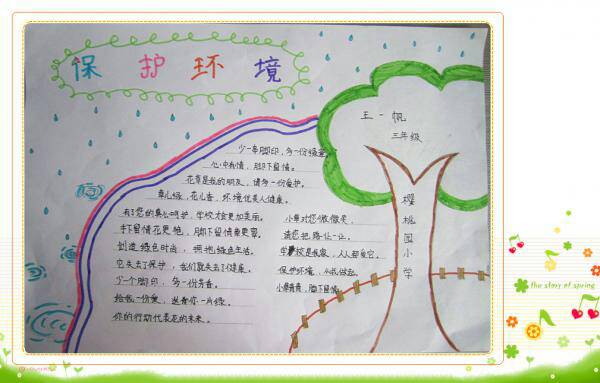 保护环境
王一帆
三年级
樱桃园小学
少一串脚印，多一份绿意。
心中有情，脚下留情。
花草是我的朋友，请多一份爱护。
草儿绿，花儿香，环境优美人健康。
有了您的真心呵护，学校才会更加美丽。
手下留情花更艳，脚下留情
创造绿色时尚，拥抱绿色生活。
它失去了保护，我们就失去了健康。
少一个脚印，多一份芳香。
给我一份爱，送着你一片绿。
你的行动代表花的未来。
小草对您微微笑，
请您把路让一让。
学校是我家，人人都爱它。
保护环境，从我做起。
小草青青，脚下留情。
the story of spring